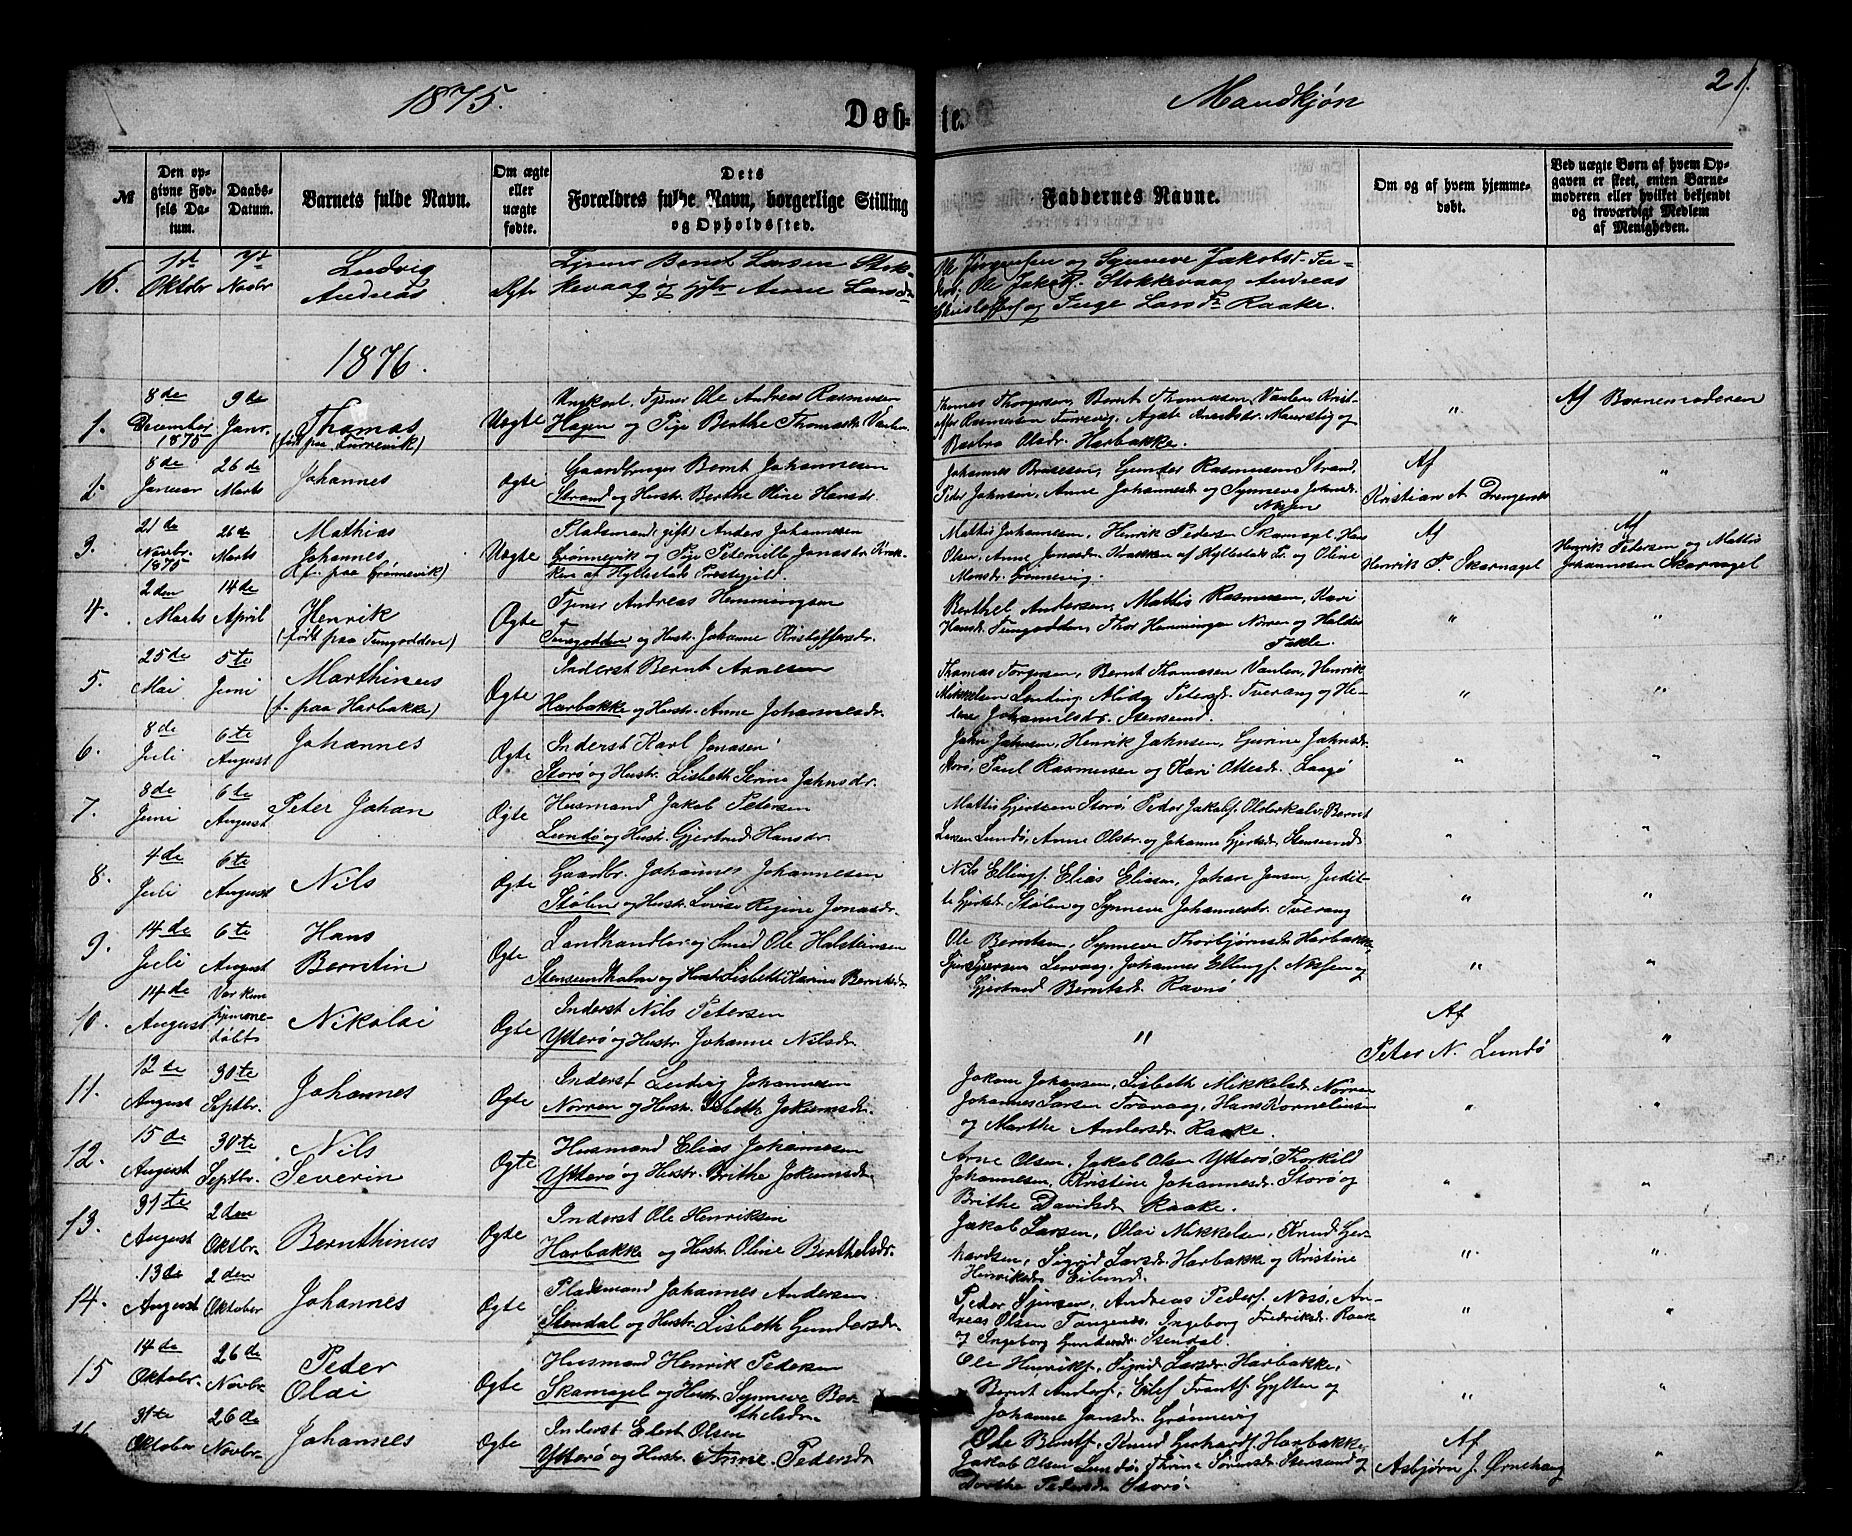 1875.
Døbte.
Mandkjøn
21.
№
Den opgivne Fødsels Datum.
Daabs-Datum.
Barnets fulde Navn.
Om ægte eller uægte fødte.
Dets Forældres fulde Navn, borgerlige Stilling og Opholdssted.
Faddernes Navne.
Om og af hvem hjemmedøbt.
Ved uægte Børn af hvem Opgaven er skeet, enten Barnemoderen eller hvilket bekjendt og troværdigt Medlem af Menigheden.
16. 1ste Oktobr 7de Novbr
Ludvig Andreas
Ægte
Tjener Bernt Larsen Stokkevaag og Anne Larsdr
og Synneve Jakobsd.
Ole Jakobs. Stokkevaag Andreas
Christoffers og Inge Larsdr Raake.
1876.
1. 8de December 1875 9de Janr.
Thomas
(født paa Furrevik)
Uægte
Ungkarl, Tjener Ole Andreas Rasmussen
Hagen og Pige Berthe Thomasdr. Vaulen
Thomas Thorgersen, Bernt Thomassen Vaulen, Krist-
offer Rasmussen
Barbro Olsdr. Harbakke.
"
Af Barnemoderen
2. 8de Januar 26de Marts
Johannes
Ægte
Gaardbruger Bernt Johannesen
Strand og Hustr. Berthe Oline Hansdr.
Johannes Gunder Rasmussen Strand,
Peder Johnsen, Anne Johannesdr og Synneve Johnsdr.
Af
Kristian A. Drengenes
"
3. 21de Novbr. 1875 26de Marts
Mathias
Johannes
(f. paa Grønnevik)
Uægte
Pladsmand (gift) Anders Johannesen
Grønnevik og Pige Peternille Jonasdr. Krak-
ken af Hyllestads Præstegjeld.
Mattis Johannesen, Henrik Peders. Skarnagel, Hans
Olsen, Anne Jonasdr. Krakken af Hyllestads Pr. og Oline
Monsdr. Grønnevig.
Af
Henrik P. Skarnagel
Af
Henrik Petersen og Mattis
Johannesen Skarnagel
4. 2den Marts 14de April
Henrik
(født paa Tungodden)
Ægte
Tjener Andreas Hemmingsen
Tungodden og Hustr. Johanne Kristoffersdr.
Berthel Andersen, Mattis Rasmussen, Kari
Hansdr. Tungodden, Thor Norren og
Takle
"
"
5. 25de Mai 5te Juni
Marthinus
(f. paa Harbakke)
Ægte
Inderst Bernt Arnesen
Harbakke og Hustr. Anne Johannesdr.
Thomas Torgersen, Bernt Thomassen Vaulen, Henrik
Mikkelsen Petersd. Tverang og He-
lene Stensund.
"
"
6. 8de Juli 6te August
Johannes
Ægte
Inderst Karl Jonasen
Storø og Hustr. Lisbeth Serine Jahnsdr.
Jahn Jahnsen, Henrik Jahnsen, Gurine Jahnsdr.
Storø, Paul Rasmussen og Kari Ottesdr. Laagø
"
"
7. 8de Juni 6te August
Peter Johan
Ægte
Husmand Jakob Petersen
Lundø og Hustr. Gjertrud Hansdr.
Mattis Gjertsen Storø, Peder Jakobs. Bernt
Larsen Lundø, Anne Olsdr. og Johanne Gjertsdr. Stensund
"
"
8. 4de Juli 6te August
Nils
Ægte
Gaardbr. Johannes Johannesen
Stølen og Hustr. Lovise Regine Jonasdr.
Nils Ellings. Elias Eliasen, Johan Jensen, Judit-
te Gjertsdr. Stølen og Synneve Johannesdr. Tverang
"
"
9. 14de Juli 6te August
Hans
Berntin
Ægte
Landhandler og Smed Ole Halsteinsen
Stensundholm og Hustr. Lisbeth Karine Berntsdr.
Ole Berntsen, Synneve Thorbjørnsdr. Harbakke,
Johannes Ellings. Nissen og
Gjertrud Berntsdr. Ravnø
"
"
10. 14de August Var kun hjemmedøbt
Nikolai
Ægte
Inderst Nils Petersen
Ytterø og Hustr. Johanne Nilsdr.
"
Af
Peter N. Lundø
"
11. 12de August 30te Septbr.
Johannes
Ægte
Inderst Ludvig Johannesen
Norren og Hustr. Lisbeth Jokumsdr.
Jokum Johansen, Lisbeth Mikkelsdr. Norren
Johannes Larsen Travaag, Hans Korneliusen
og Marthe Andersdr. Raake.
"
"
12. 15de August 30te Septbr.
Nils
Severin
Ægte
Husmand Elias Johannesen
Ytterø og Hustr. Brithe Jokumsdr.
Arne Olsen, Jakob Olsen Ytterø, Thorkild
Johannesen, Kristine Johannesdr. Storø og
Brithe Davidsdr. Raake.
"
"
13. 31te August 2den Oktbr.
Bernthinus
Ægte
Inderst Ole Henriksen
Harbakke og Hustr. Oline Berthelsdr.
Jakob Larsen, Olai Mikkelsen, Knud Ger-
hardsen, Sigrid Larsdr. Harbakke og Kristine
Henriksdr. Eilund.
"
"
14. 13de August 2den Oktober
Johannes
Ægte
Pladsmand Johannes Andersen
Stendal og Hustr. Lisbeth Gundersdr.
Peder Andreas Peders. Nesø, An-
dreas Olsen Ingeborg Fredriksdr. Raake
og Ingeborg Gundersdr. Stendal.
"
"
15 14de Oktobr. 26de Novbr.
Peder
Olai
Ægte
Husmand Henrik Pedersen
Skarnagel og Hustr. Synneve Ber-
thelsdr.
Ole Henriks. Sigrid Larsdr. Harbakke,
Bernt Anders. Eilef Hylten og
Johanne Jansdr. Grønnevig
"
"
31te Oktober 26de Novbr.
Johannes
Ægte
Inderst Elert Olsen
Ytterø og Hustr. Anne Pedersdr
Ole Bernts. Knud Gerhards. Harbakke,
Jakob Olsen Lundø, Thrine Sørensdr. Stensund og
Dorthe Pedersdr. Storø.
Af
Asbjørn J. Ørnehaug
"